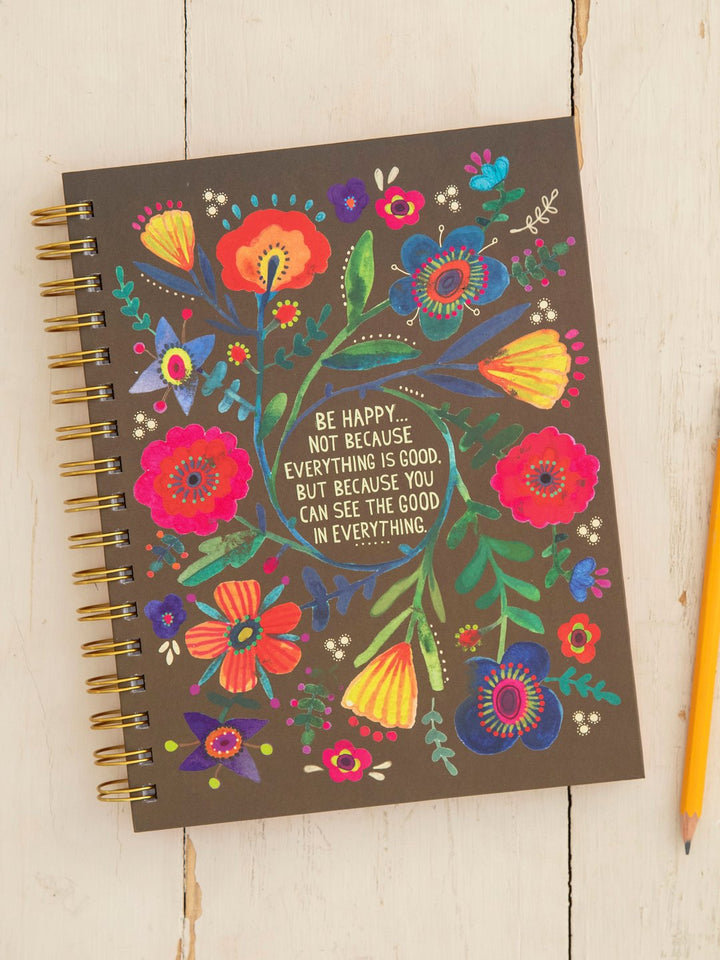 BE HAPPY...
NOT BECAUSE
EVERYTHING IS GOOD,
BUT BECAUSE YOU
CAN SEE THE GOOD
IN EVERYTHING.